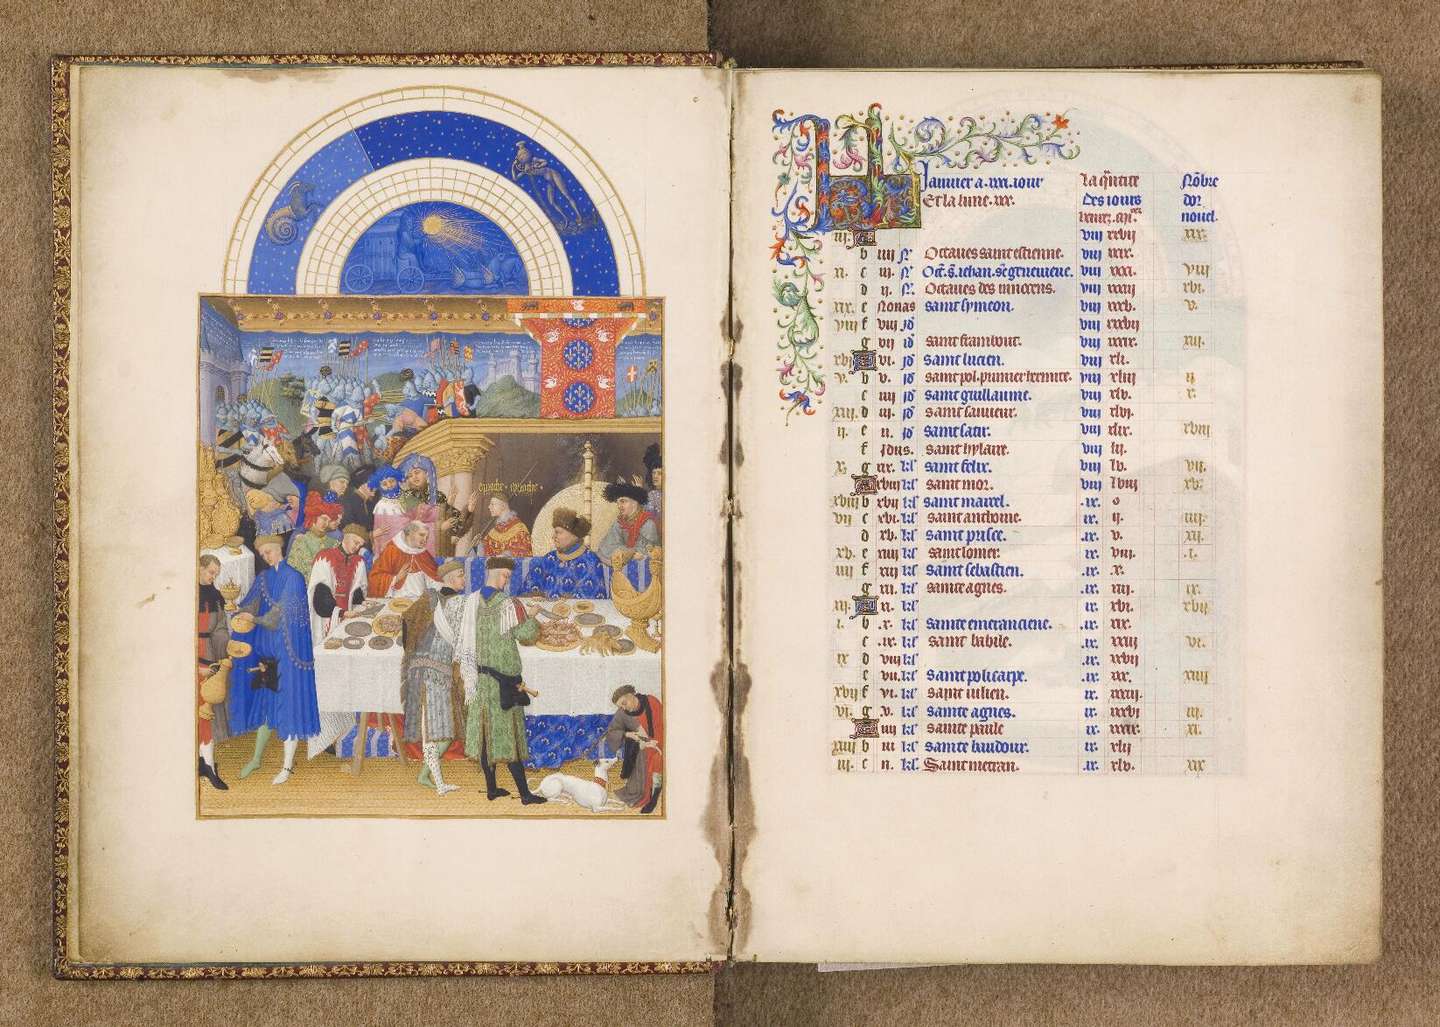 aproche · aproche ·
Janvier a .xxxi. iour
Et la lune .xxx.
La q̄ntite
des iours
Nōbre
dor
nouel.
iii. A viii xxvii xix.
b iiii N̄ Octaves saint estienne. viii xxix.
xi. c iii. N̄ Oct. s. iehan. ste genevieve. viii xxxi. viii
d ii. N̄ Octaves des innocens. viii xxxiii xvi.
xix. e Nonas saint symeon. viii xxxv. v.
viii f viii id viii xxxvii
g vii id saint frambout. viii xxxix. xiii.
xvi A vi. id saint lucien. viii xli. ii
v. b v. id saint pol. premier hermite. viii xliii
c iiii id saint guillaume. viii xlv. x.
xiii. d iii. id saint sauveur. viii xlvi.
ii. e ii. id saint satir. viii xlix. xviii
f Idus. saint hylaire. viii lii.
x. g xix. kl saint felix. viii lv. vii.
A xviii kl saint mor. viii lviii xv.
xviii b xvii kl saint marcel. ix. o
vii c xvi. kl saint anthoine. ix. ii. iiii.
d xv. kl saint prisce. ix. v. xii.
xv. e xiiii kl saint lomer. ix. viii. .i.
iiii f xiii kl saint sebastien. ix. x.
g xii. kl sainte agnes. .ix. xiii. ix.
xii. A xi. kl ix. xvi. xvii
i. b .x. kl sainte emeranciene. ix. xix.
c .ix. kl saint babile. ix. xxiii vi.
ix d viii kl ix. xxvii
e vii. kl saint policarpe. .ix. xxx. xiiii
xvii f vi. kl saint iulien. ix. xxxiii.
vi. g .v. kl sainte agnes. ix. xxxvi iii.
A iiii kl sainte paule ix. xxxix. xi.
xiiii b iii kl sainte baudour. ix. xlii
iii. c ii. kl Saint metran. .ix. xlv. xix